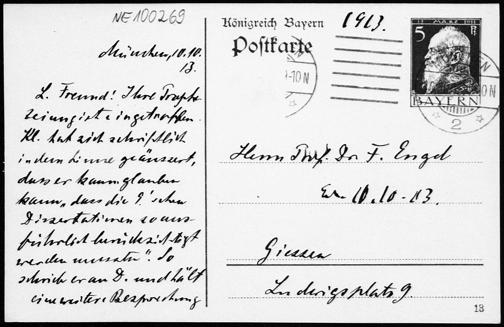 NE 100269
München, 10.10.
13.
L. Freund! Ihre
zeigung ist eingetroffen.
Kl. hat sich schriftlich
in dem Sinne geäussert,
dass er kaum glauben
kann, "dass die E'schen
Dissertationen so aus-
führlich berücksichtigt
werden mussten". So
schrieb er an D. und hält
eine weitere Besprechung
Königreich Bayern
Postkarte
1913.
5
BAYERN
2
Herrn Prof. Dr. F. Engel
10.10.13.
Giessen
Ludwigsplatz 9.
13